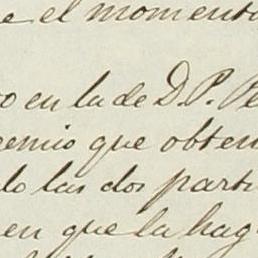 e el momento
o en la de D. P. Pe
genio que obten
do las dos parti
en que la hag